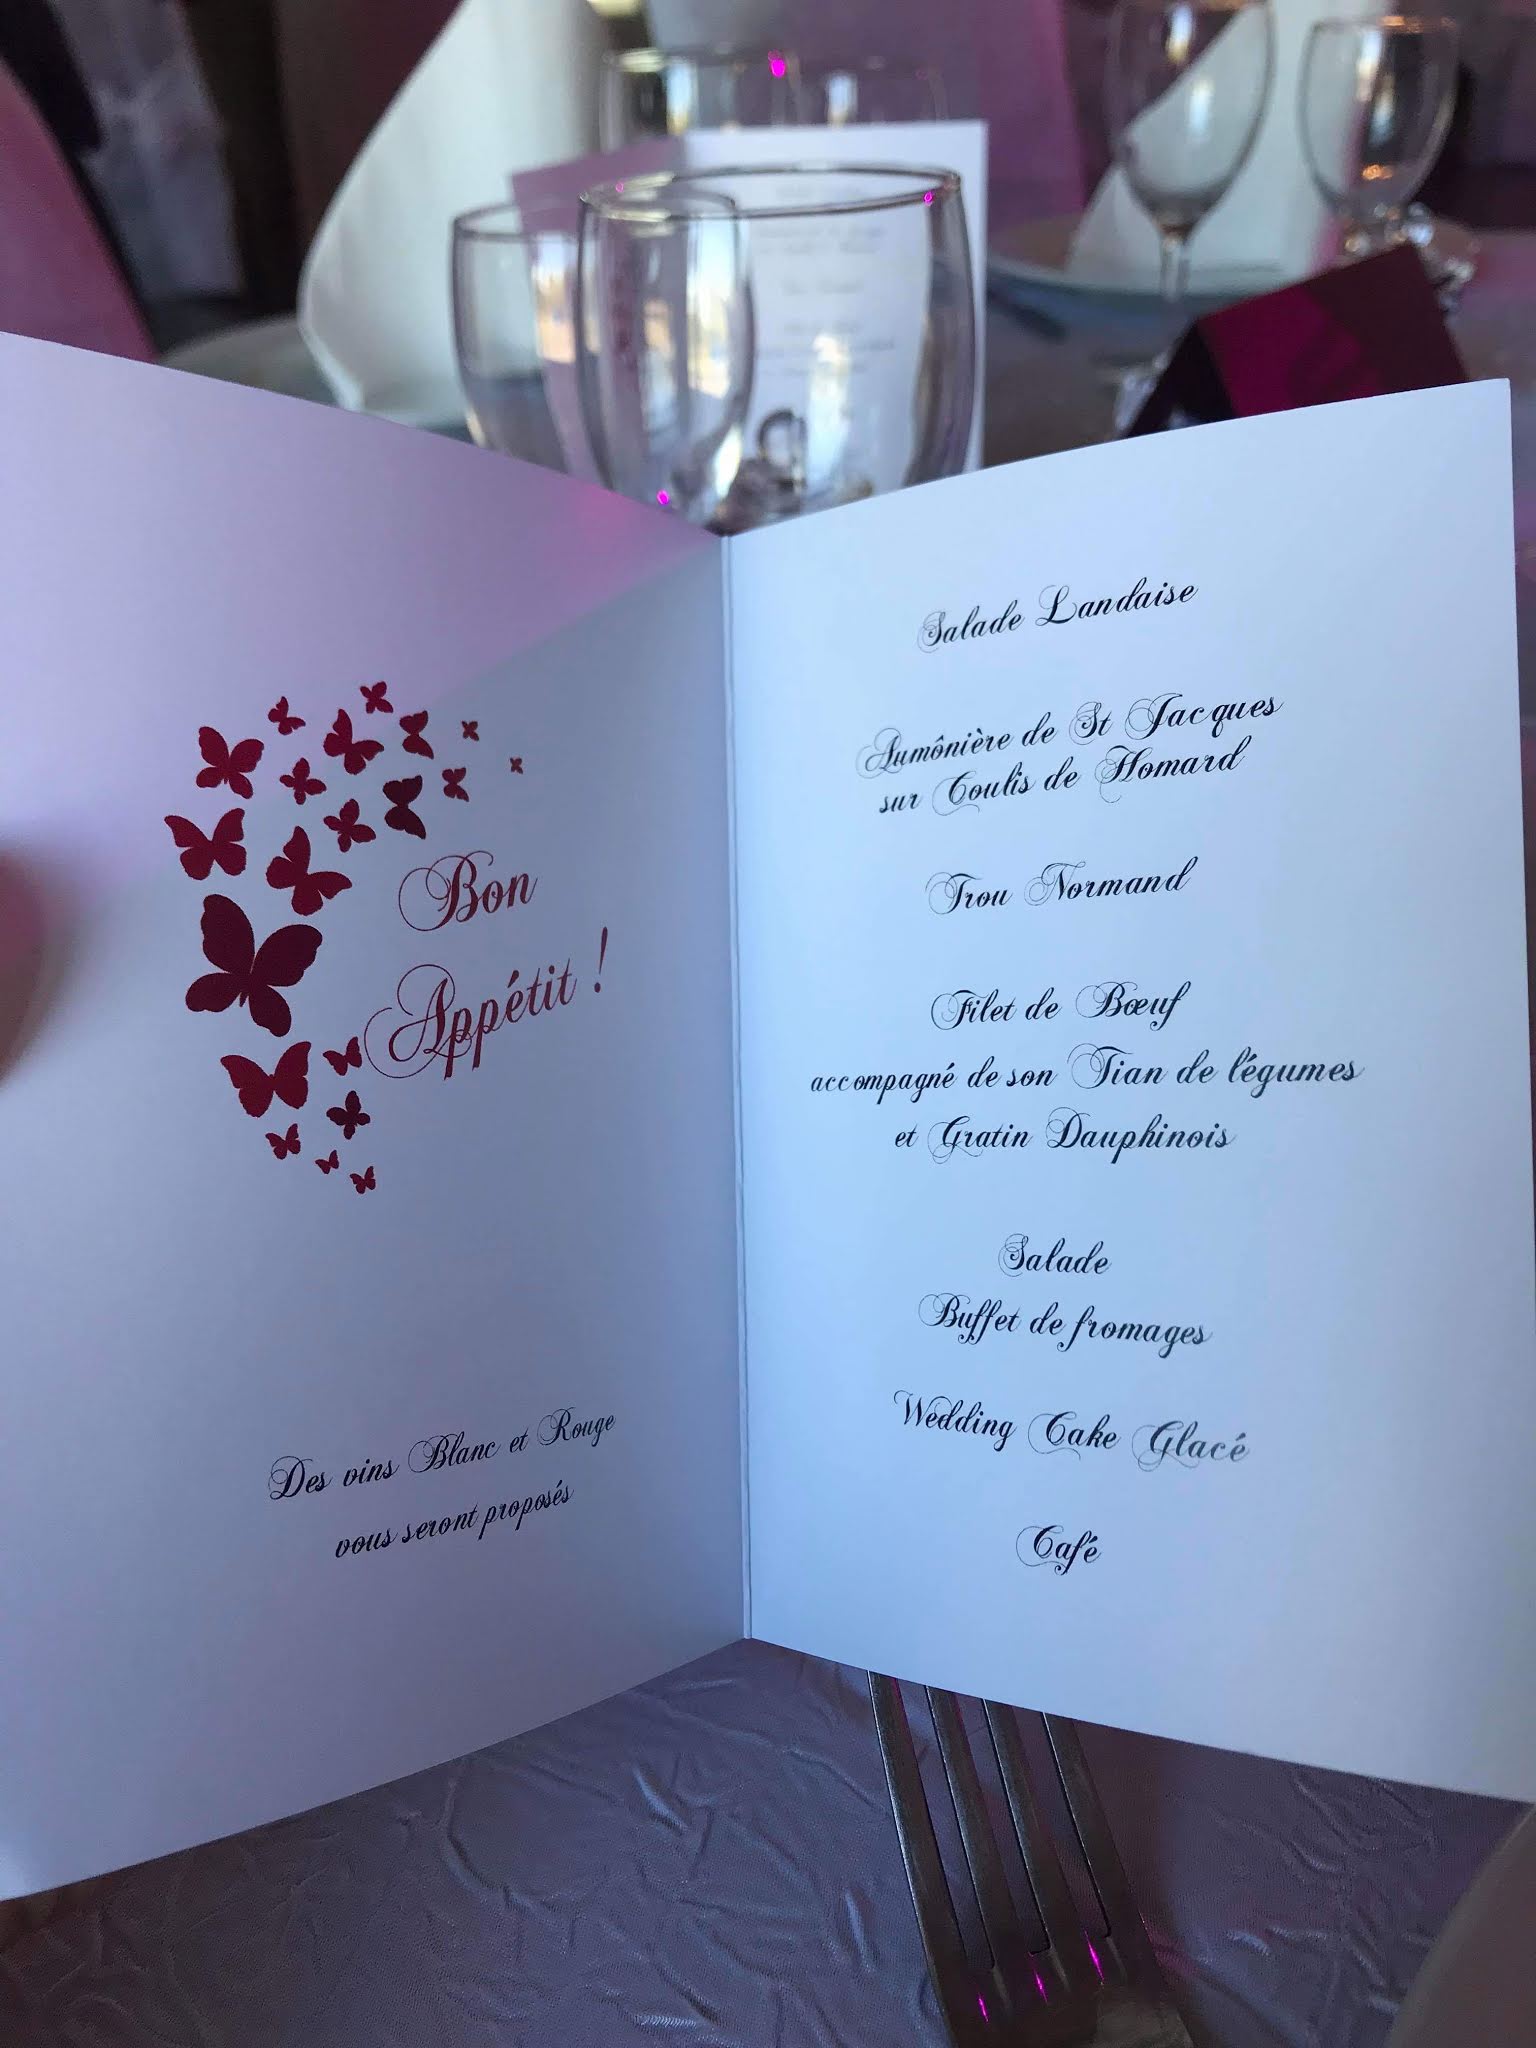 Bon
Appétit !
Des vins Blanc et Rouge
vous seront proposés
Salade Landaise
Aumônière de St Jacques
sur Coulis de Homard
Trou Normand
Filet de Bœuf
accompagné de son Tian de légumes
et Gratin Dauphinois
Salade
Buffet de fromages
Wedding Cake Glacé
Café